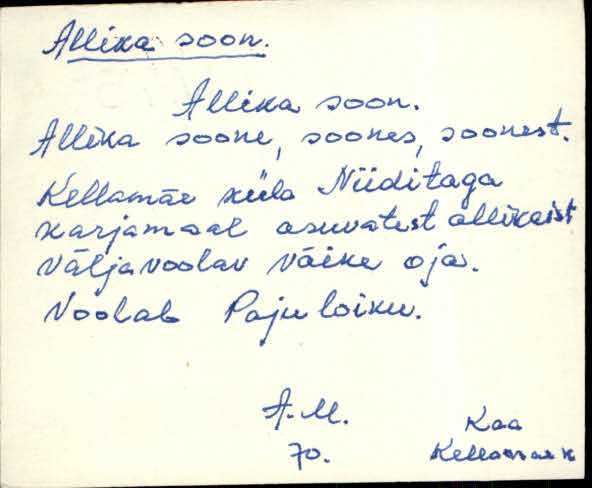 Allika soon.
Allika soon.
Allika soone, soones, soonest.
Kellamäe küla Niiditaga
karjamaal asuvatest allikaist
väljavoolav väike oja.
Voolab Paju loiku.
A.M. Kaa
70. Kellamäe k